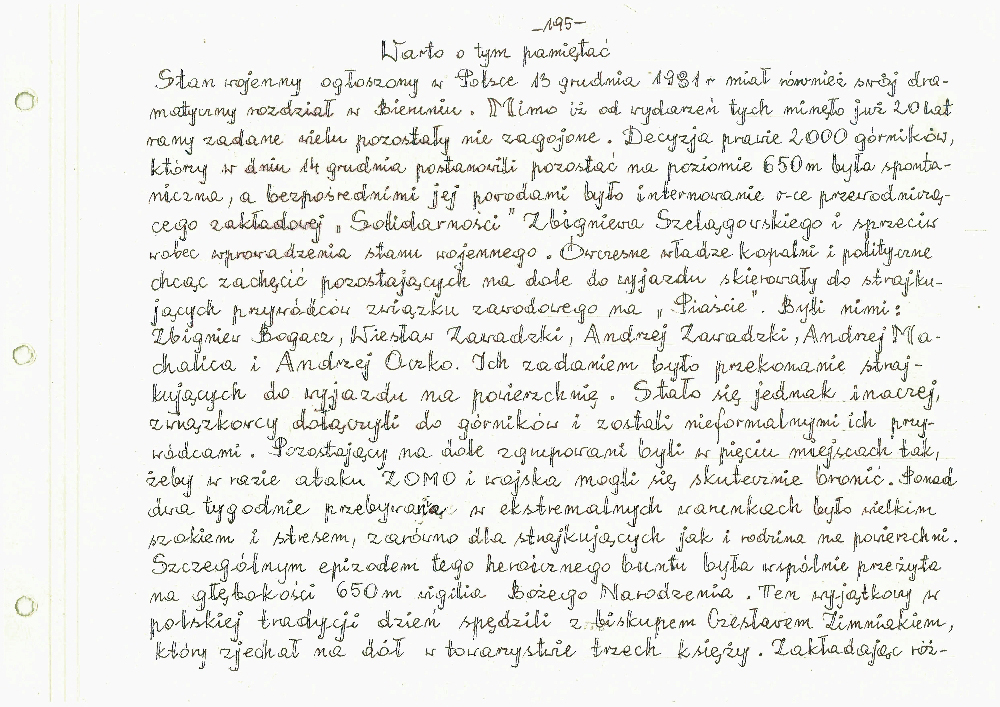 -195-
Warto o tym pamiętać
Stan wojenny ogłoszony w Polsce 13 grudnia 1981 r miał również swój dra-
matyczny rozdział w Bieruniu. Mimo iż od wydarzeń tych minęło już 20 lat
rany zadane wielu pozostały nie zagojone. Decyzja prawie 2000 górników,
który w dniu 14 grudnia postanowili pozostać na poziomie 650 m była sponta-
niczna, a bezpośrednimi jej powodami było internowanie v-ce przewodniczą-
cego zakładowej „Solidarności" Zbigniewa Szelągowskiego i sprzeciw
wobec wprowadzenia stanu wojennego. Ówczesne władze kopalni i polityczne
chcąc zachęcić pozostających na dole do wyjazdu skierowały do strajku-
jących przywódców związku zawodowego na „Piaście". Byli nimi:
Zbigniew Bogacz, Wiesław Zawadzki, Andrzej Zawadzki, Andrzej Ma-
chalica i Andrzej Oczko. Ich zadaniem było przekonanie straj-
kujących do wyjazdu na powierzchnię. Stało się jednak inaczej,
związkowcy dołączyli do górników i zostali nieformalnymi ich przy-
wódcami. Pozostający na dole zgrupowani byli w pięciu miejscach tak,
żeby w razie ataku ZOMO i wojska mogli się skutecznie bronić. Ponad
dwa tygodnie przebywania w ekstremalnych warunkach było wielkim
szokiem i stresem, zarówno dla strajkujących jak i rodzina na powierzchni.
Szczególnym epizodem tego heroicznego buntu była wspólnie przeżyta
na głębokości 650 m wigilia Bożego Narodzenia. Ten wyjątkowy w
polskiej tradycji dzień spędzili z biskupem Czesławem Zimniakiem,
który zjechał na dół w towarzystwie trzech księży. Zakładając róż-